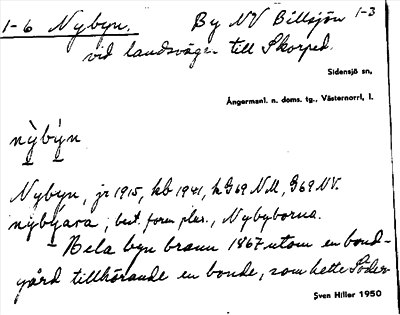 1-6 Nybyn. By NV Billsjön 1-3
vid landsvägen till Skorped.
Sidensjö sn,
Ångermanl. n. doms. tg., Västernorrl, l.
nỳby̆n
Nybyn, jr 1915, kb 1941, kG69 NM, G69 NV.
nybyara, best. form plur., Nybyborna.
- Hela byn brann 1867 utom en bond-
gård tillhörande en bonde, som hette Söder-
Sven Hiller 1950